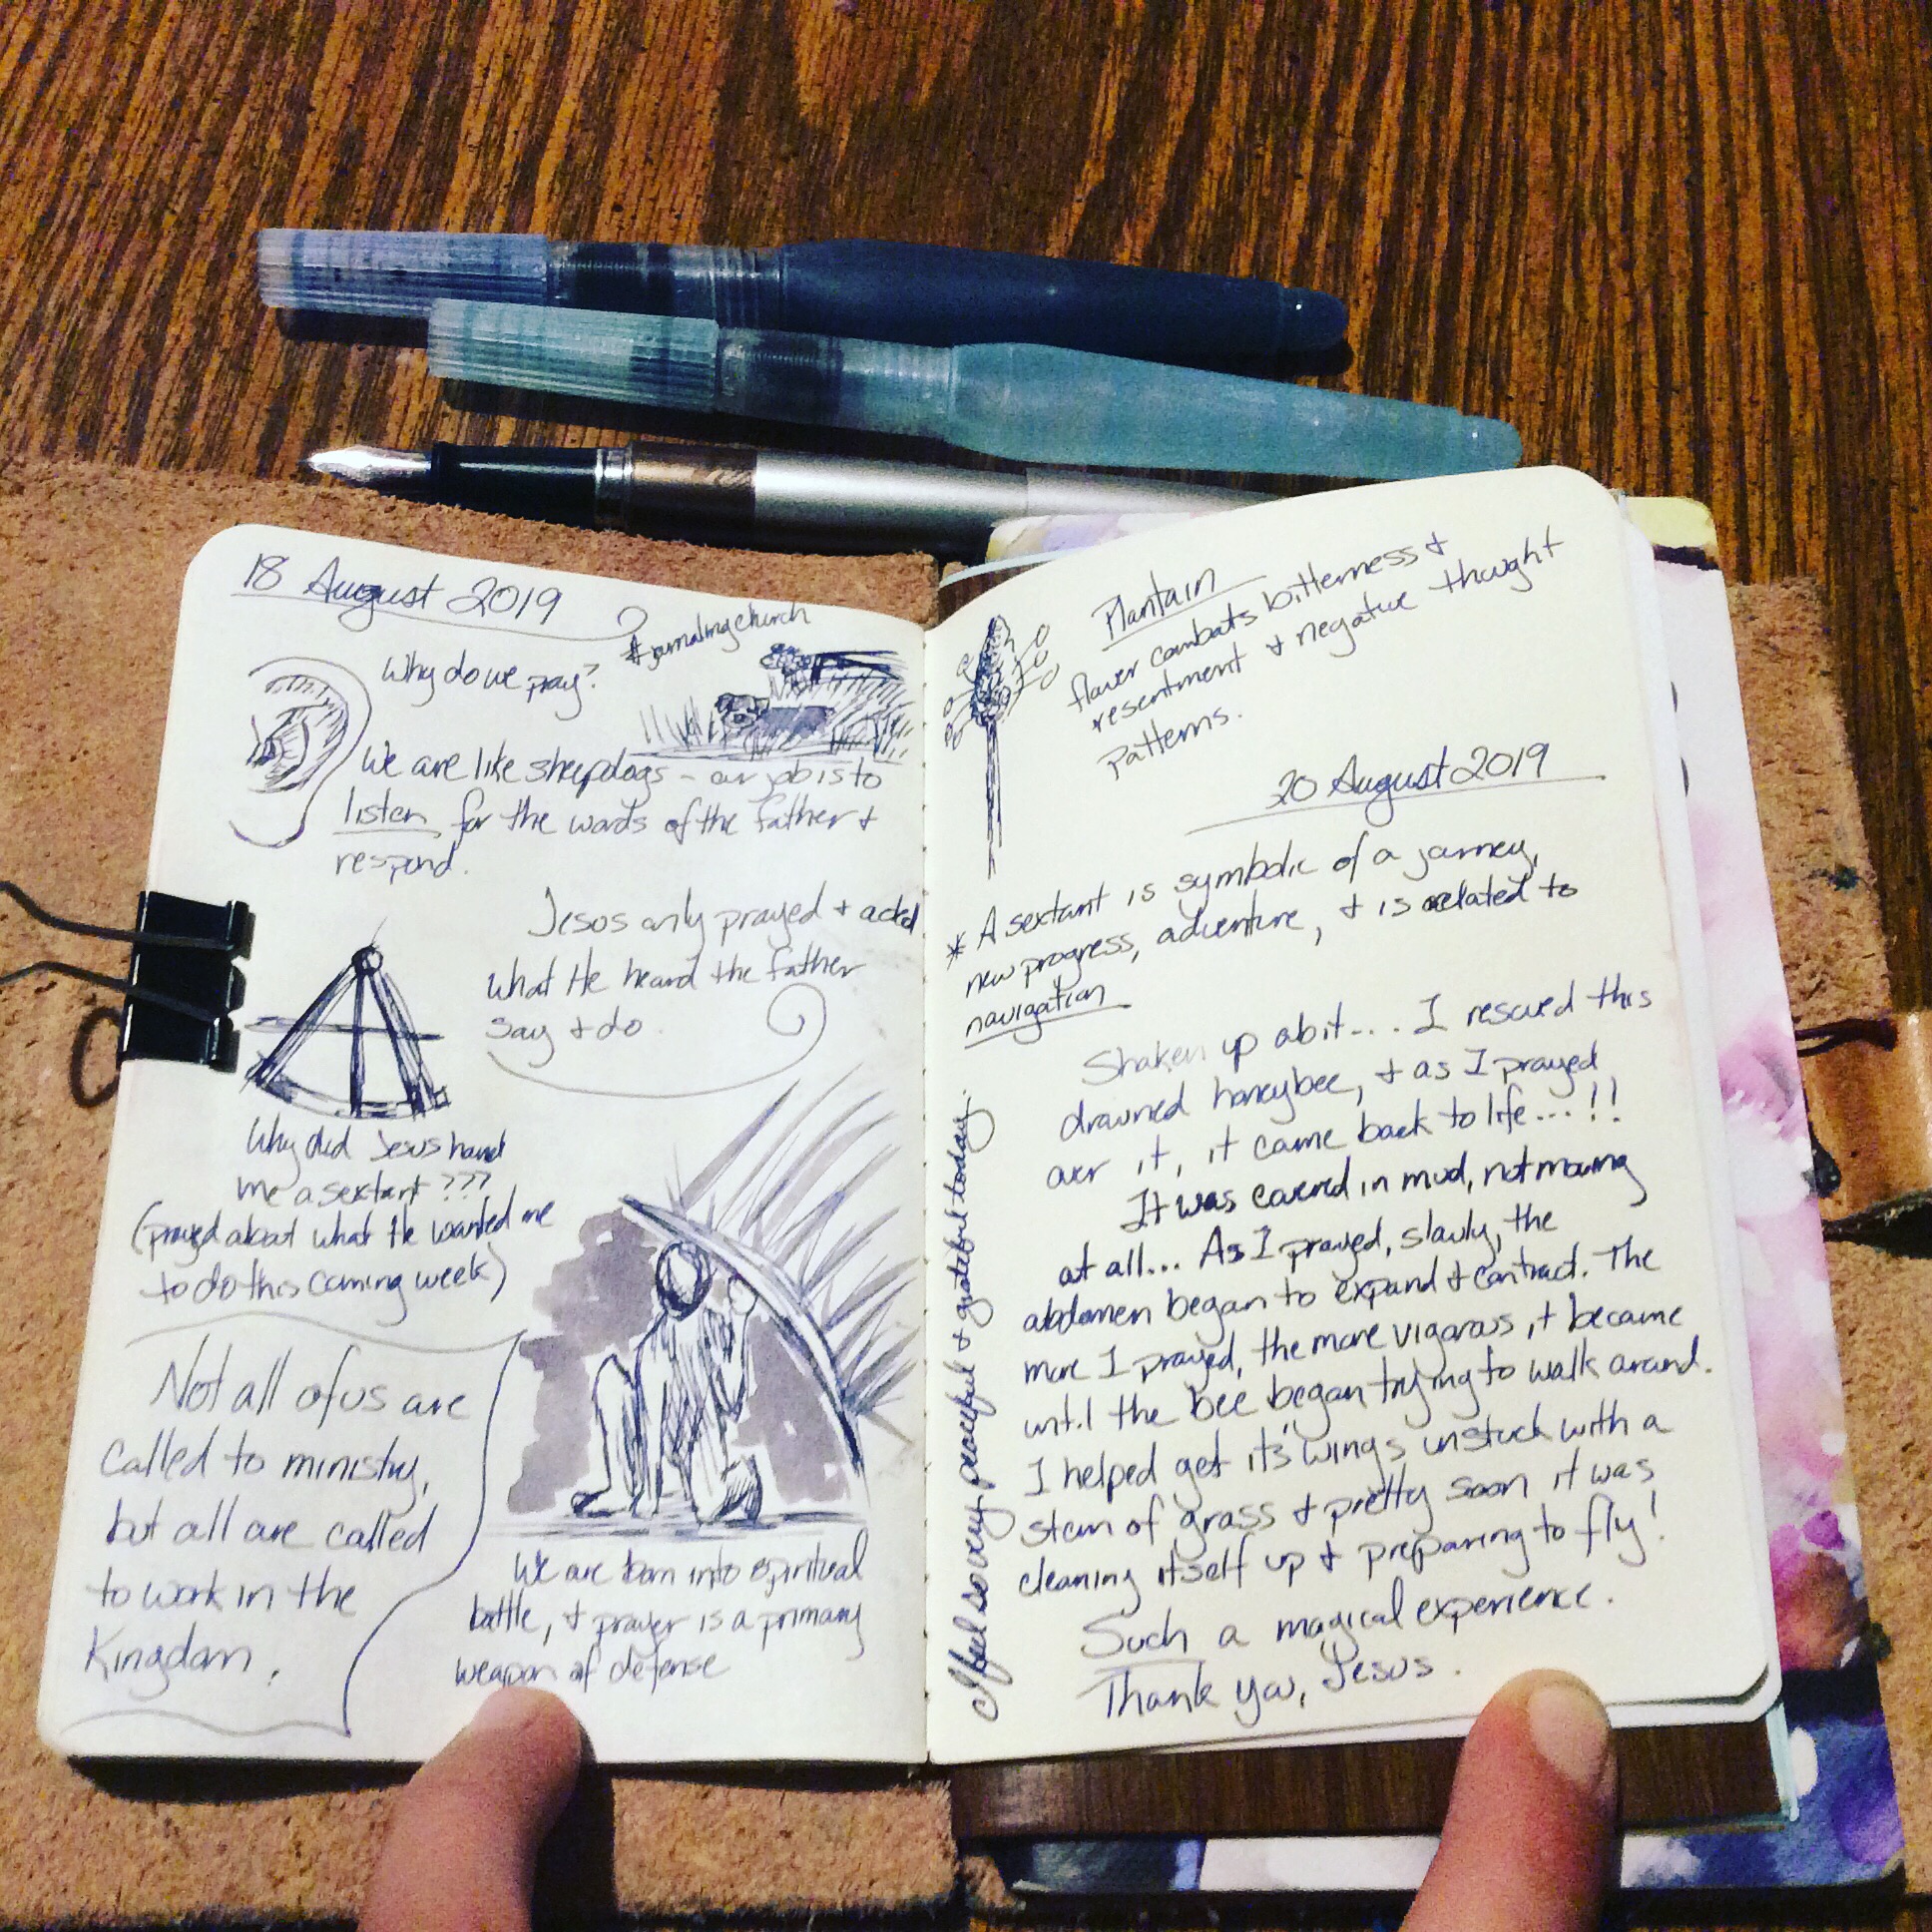 18 August 2019
#journalingchurch
Why do we pray?
We are like sheepdogs - our job is to
listen for the words of the Father &
respond.
Jesus only prayed & acted
what He heard the Father
say & do.
Why did Jesus hand
me a sextant ???
(prayed about what He wanted me
to do this coming week)
Not all of us are
called to ministry,
but all are called
to work in the
Kingdom.
We are born into spiritual
battle, & prayer is a primary
weapon of defense
Plantain
flower combats bitterness &
resentment & negative thought
patterns.
20 August 2019
* A sextant is symbolic of a journey,
new progress, adventure, & is related to
navigation
Shaken up a bit... I rescued this
drowned honeybee, & as I prayed
over it, it came back to life...!!
It was covered in mud, not moving
at all... As I prayed, slowly, the
abdomen began to expand & contract. The
more I prayed, the more vigorous it became
until the bee began trying to walk around.
I helped get it's wings unstuck with a
stem of grass & pretty soon it was
cleaning itself up & preparing to fly!
Such a magical experience.
Thank you, Jesus.
I feel so very peaceful & grateful today.